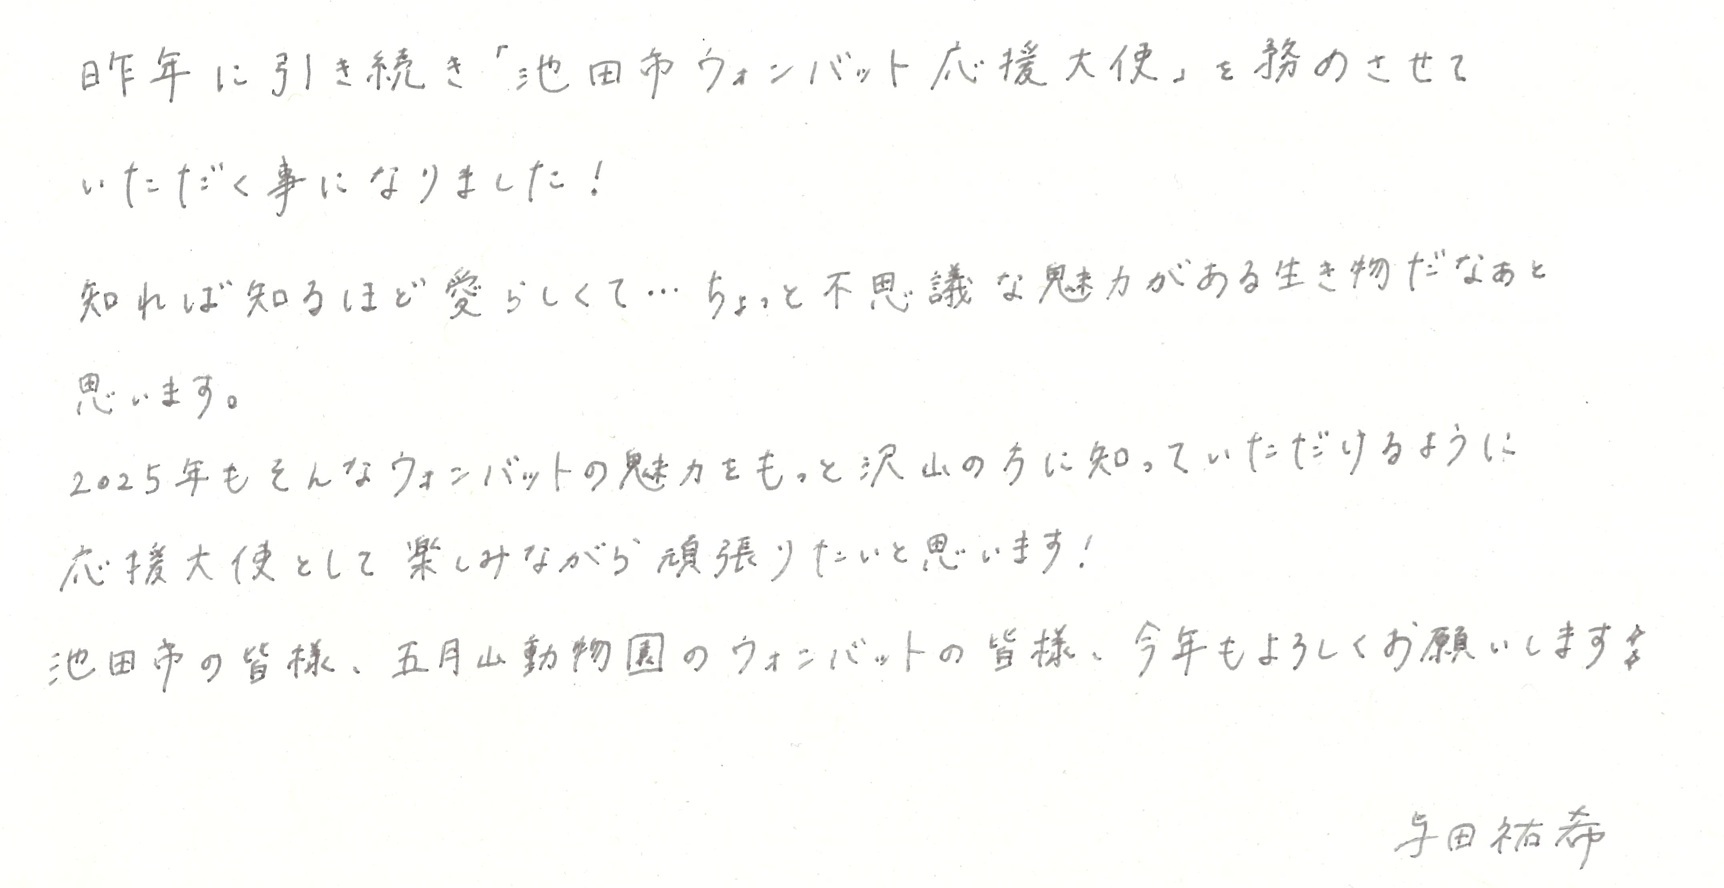 昨年に引き続き「池田市ウォンバット応援大使」を務めさせて
いただく事になりました!
知れば知るほど愛らしくて…ちょっと不思議な魅力がある生き物だなぁと
思います。
2025年もそんなウォンバットの魅力をもっと沢山の方に知っていただけるように
応援大使として楽しみながら頑張りたいと思います!
池田市の皆様、五月山動物園のウォンバットの皆様、今年もよろしくお願いします!
与田祐希